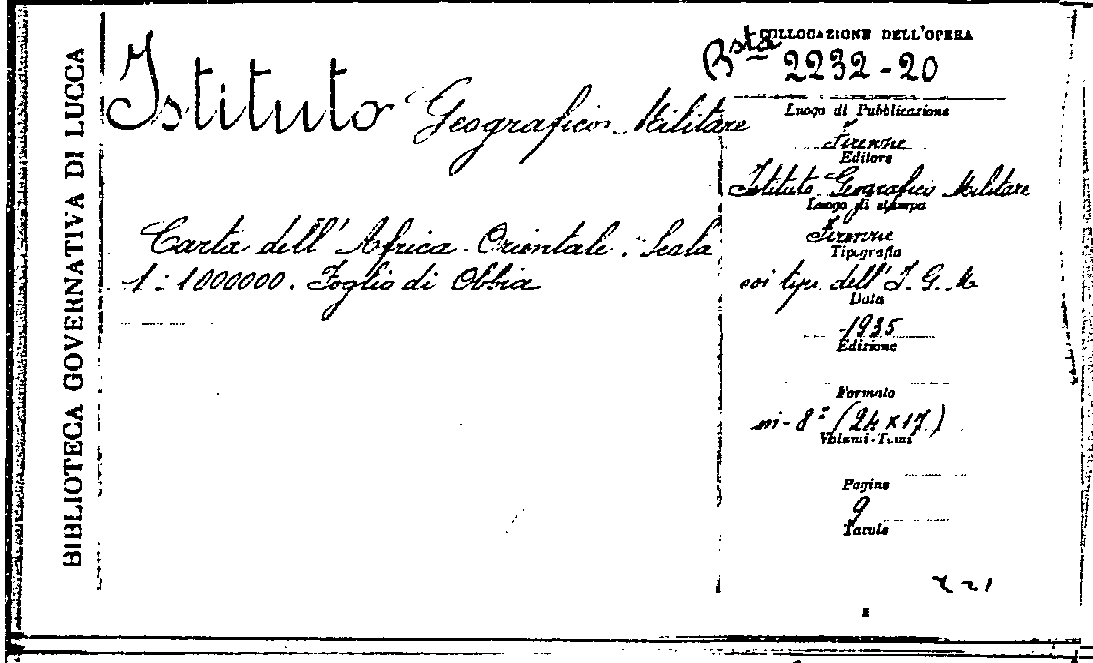 BIBLIOTECA GOVERNATIVA DI LUCCA
Istituto Geografico Militare
Carta dell'Africa Orientale. Scala
1:1000000. Foglio di Obbia
COLLOCAZIONE DELL'OPERA
Bsta 2232-20
Luogo di Pubblicazione
Firenze
Editore
Istituto Geografico Militare
Luogo di stampa
Firenze
Tipografia
coi tipi dell'I. G. M
Data
1935
Edizione
Formato
in-8° (24x17)
Volumi-Tomi
Pagine
9
Tavole